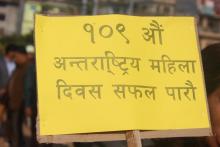 १०९ औं
अन्तराष्ट्रिय महिला
दिवस सफल पारौ